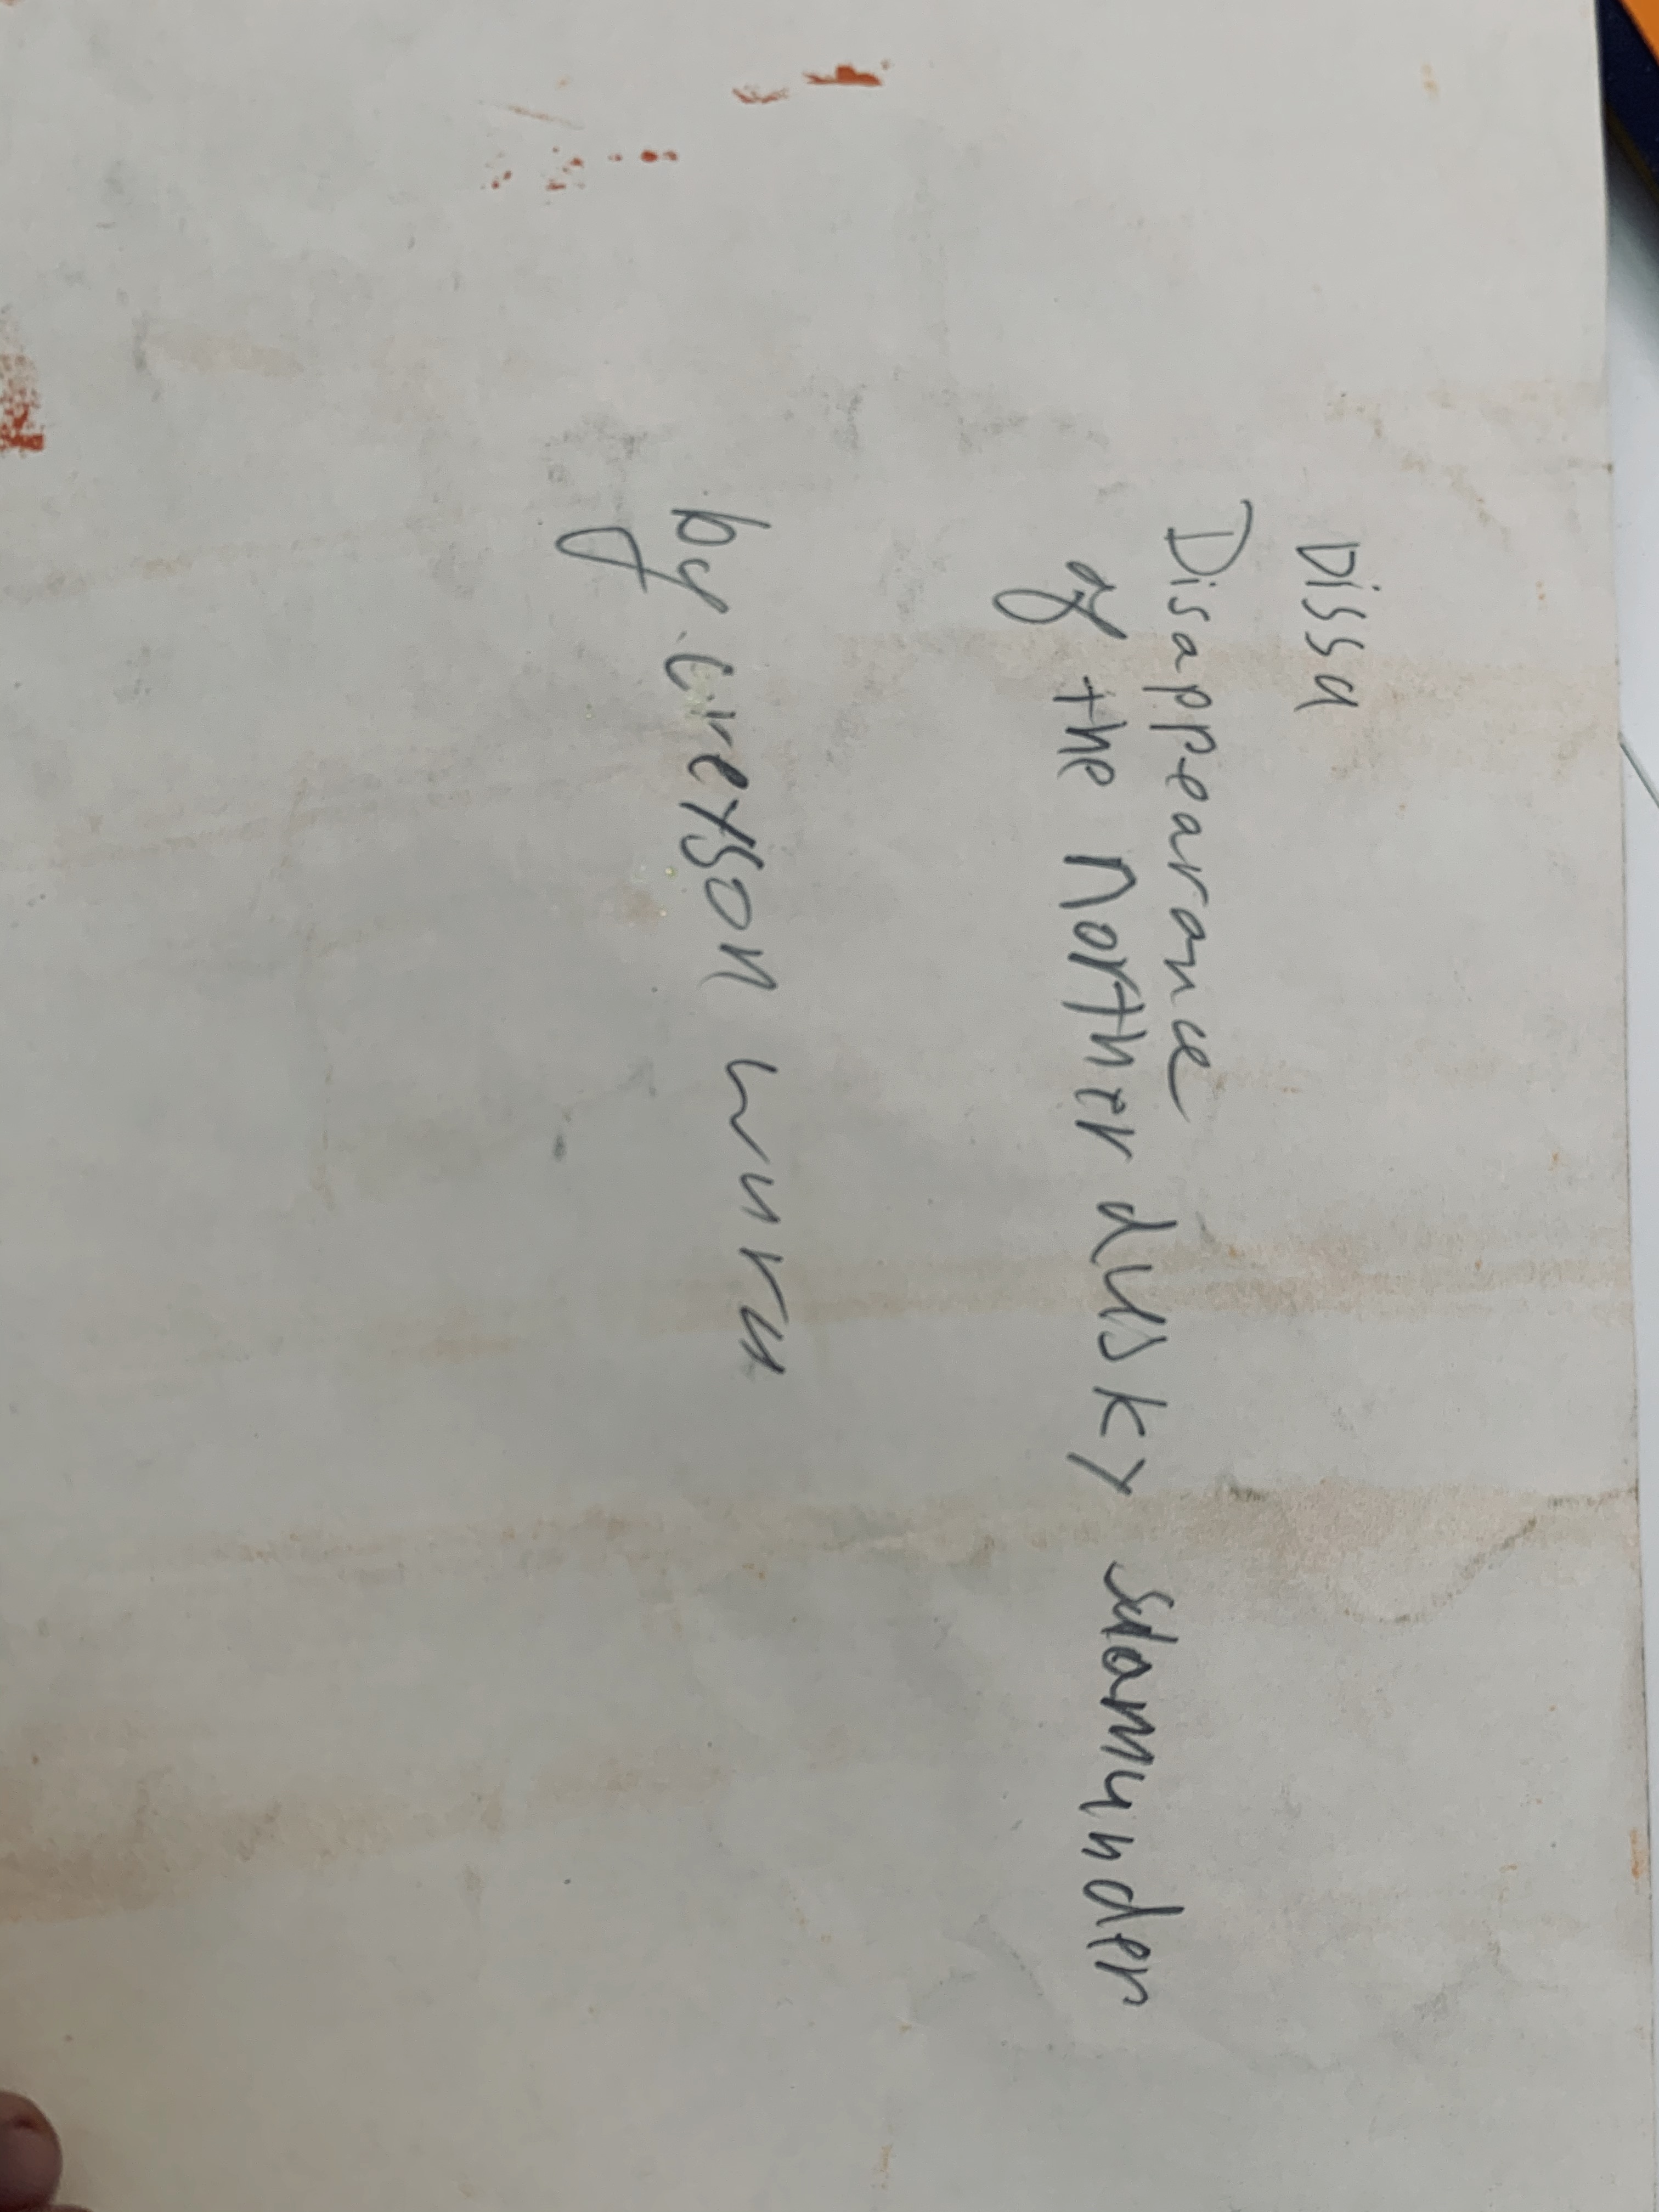 Dissa
Disappearance
of the Norther dusky salamander
by Greyson